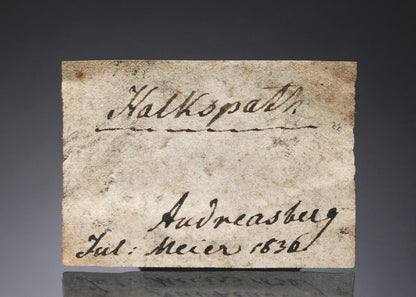 Kalkspath
Andreasberg
Jul: Meier 1836